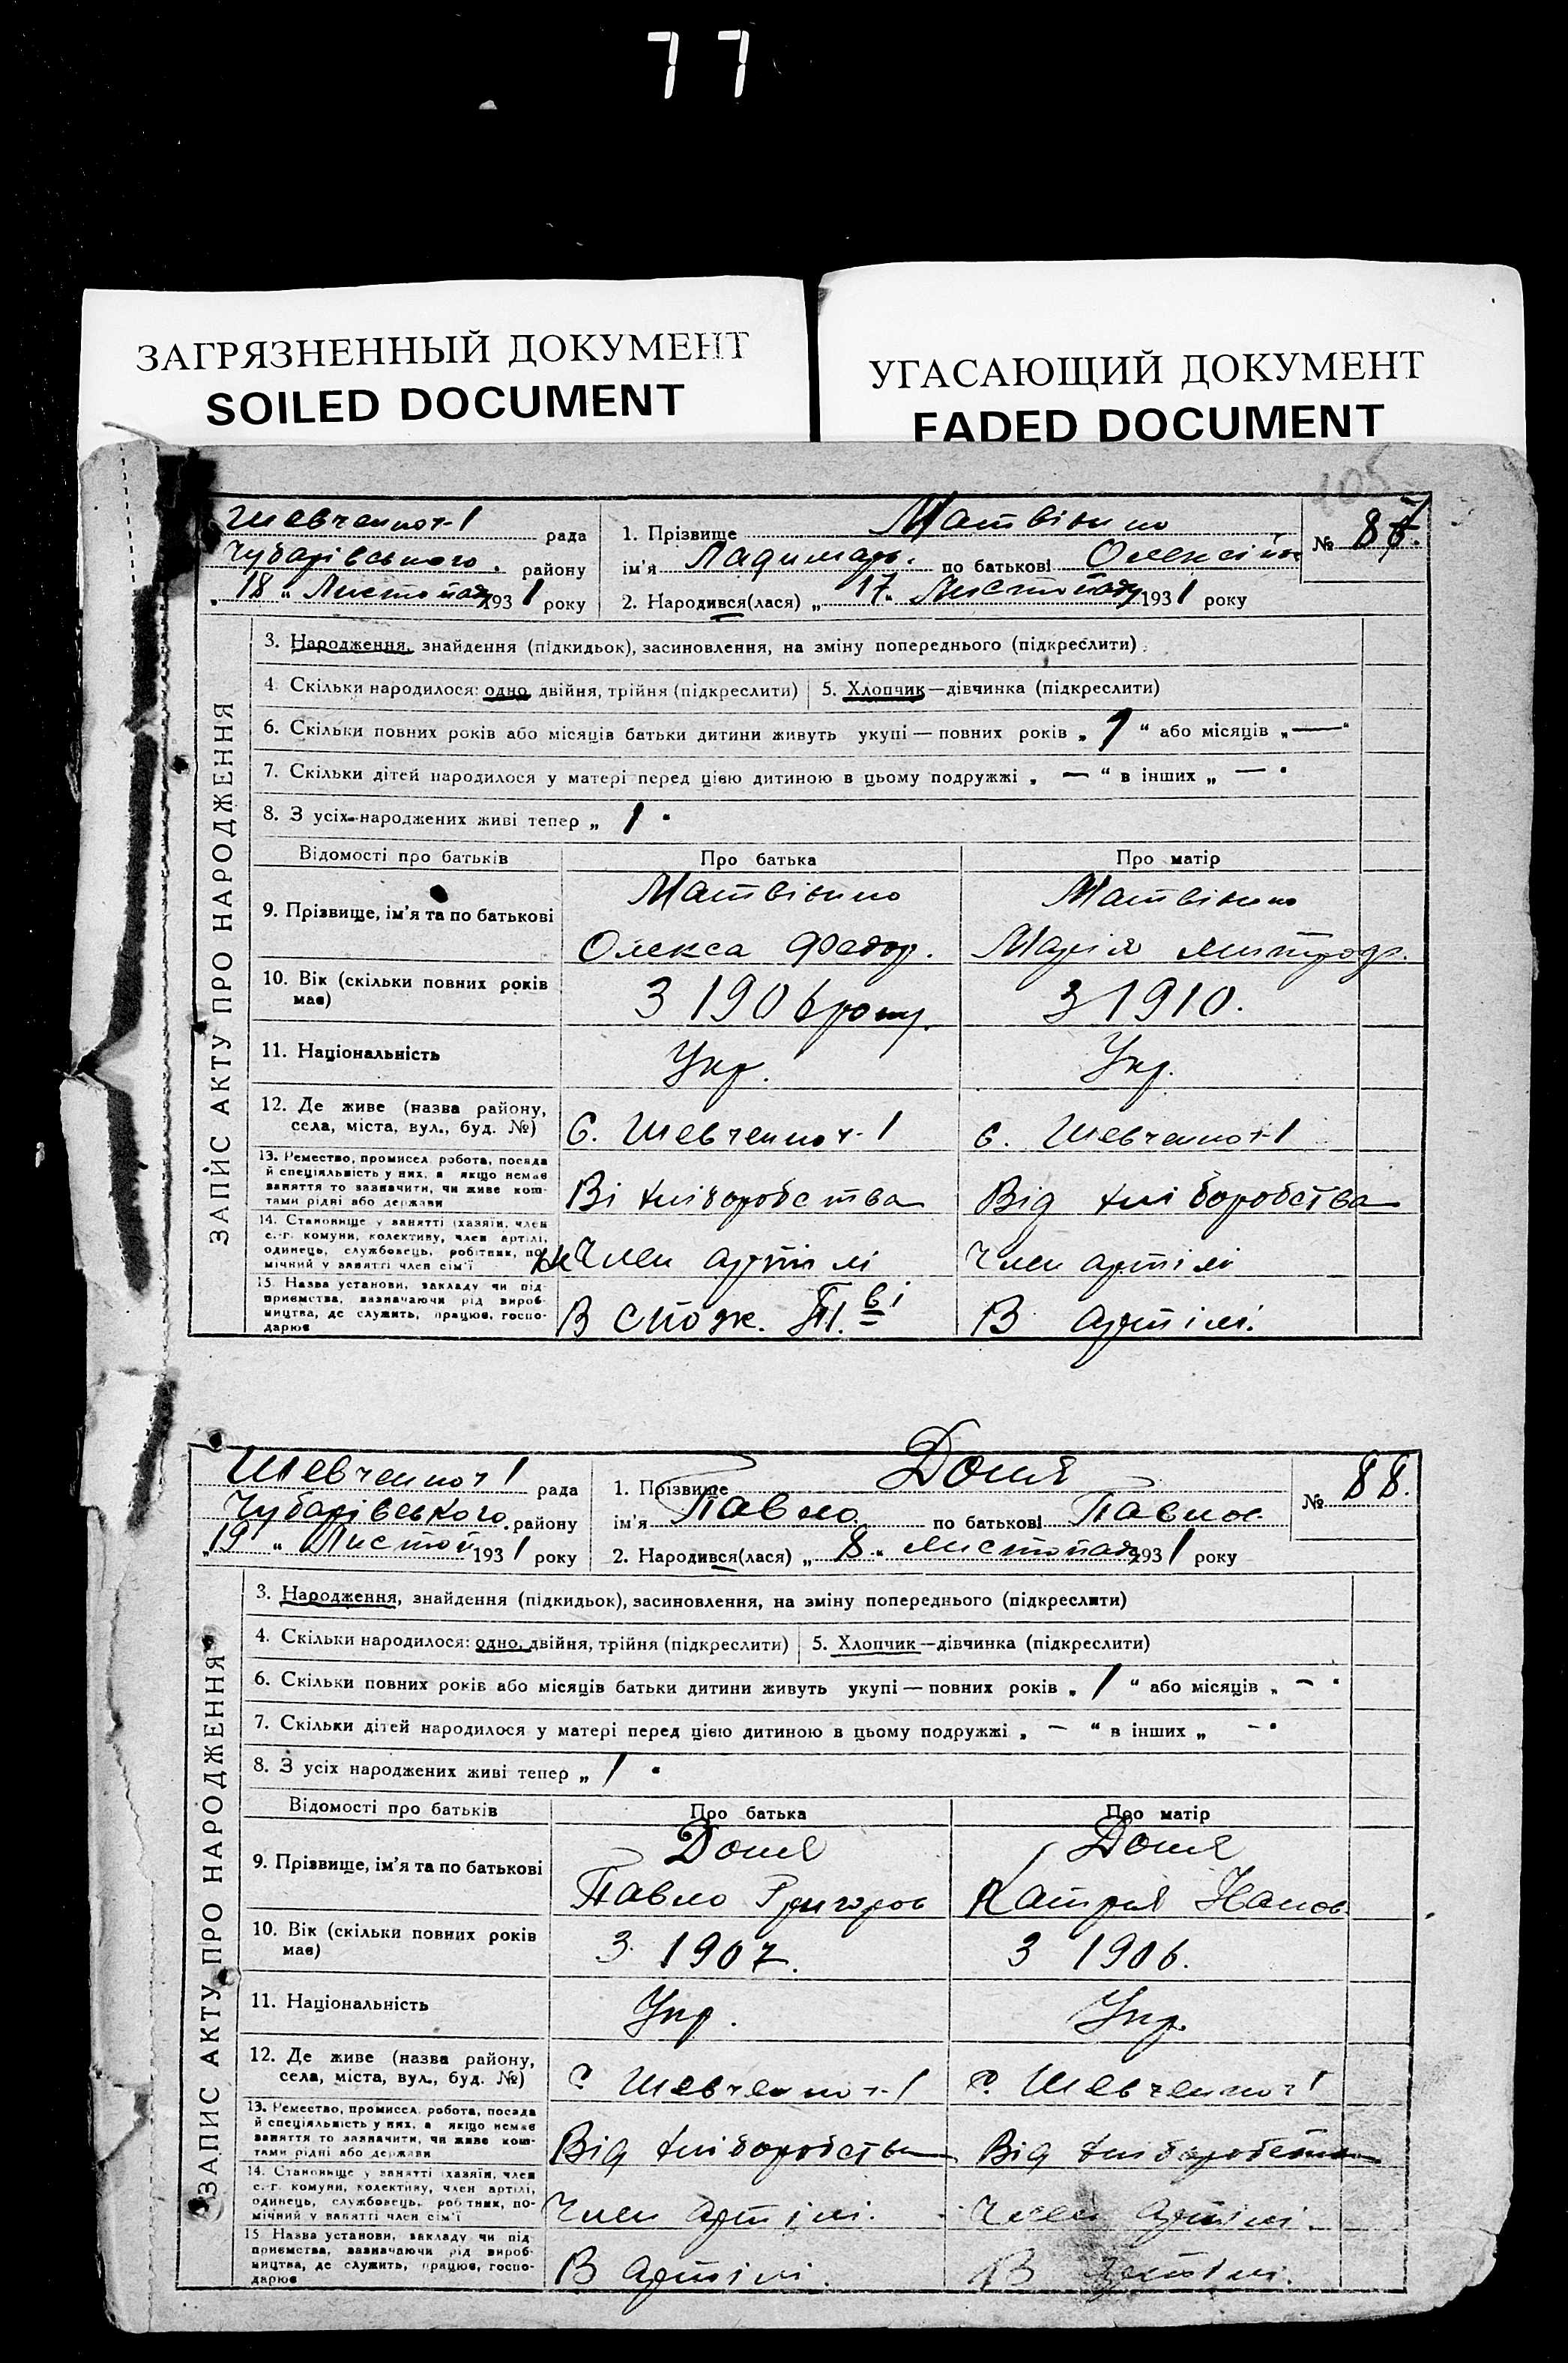 77
ЗАГРЯЗНЕННЫЙ ДОКУМЕНТ
SOILED DOCUMENT
УГАСАЮЩИЙ ДОКУМЕНТ
FADED DOCUMENT
105
ЗАПИС АКТУ ПРО НАРОДЖЕННЯ
Шевченкот-1 рада
Чубарівського. району
„18“ Листопад 1931 року
1. Прізвище Матвієнко
ім'я Ладимарь. по батькові Олексійов
№ 87.
2. Народився(лася) „17“ Листопад 1931 року
3. Народження, знайдення (підкидьок), засиновлення, на зміну попереднього (підкреслити)
4. Скільки народилося: одно, двійня, трійня (підкреслити) 5. Хлопчик—дівчинка (підкреслити)
6. Скільки повних років або місяців батьки дитини живуть укупі — повних років „1“ або місяців „—“
7. Скільки дітей народилося у матері перед цією дитиною в цьому подружжі „—“ в інших „—“
8. З усіх народжених живі тепер „1“
Відомості про батьків Про батька Про матір
9. Прізвище, ім'я та по батькові Матвієнко Матвієнко
Олекса Федор. Марія
10. Вік (скільки повних років має) З 1906 року. З 1910.
11. Національність Укр. Укр.
12. Де живе (назва району, села, міста, вул., буд. №) С. Шевченкот-1 с. Шевченкот-1
13. Ремество, промисел, робота, посада й спеціяльність у них, а якщо немає заняття то зазначити, чи живе коштами рідні або держави Ві хліборобства Від хліборобства
14. Становище у занятті (хазяїн, член с.-г. комуни, колективу, член артілі, одинець, службовець, робітник, помічний у занятті член сім'ї Член артілі Член артілі
15. Назва установи, закладу чи підприємства, зазначаючи рід виробництва, де служить, працює, господарює В спож. В артілі.
ЗАПИС АКТУ ПРО НАРОДЖЕННЯ
Шевченкот 1 рада
Чубарівського. району
„19“ Листоп 1931 року
1. Прізвище Доля
ім'я Павло. по батькові Павлов
№ 88.
2. Народився(лася) „8“ Листопад 1931 року
3. Народження, знайдення (підкидьок), засиновлення, на зміну попереднього (підкреслити)
4. Скільки народилося: одно, двійня, трійня (підкреслити) 5. Хлопчик—дівчинка (підкреслити)
6. Скільки повних років або місяців батьки дитини живуть укупі — повних років „1“ або місяців „—“
7. Скільки дітей народилося у матері перед цією дитиною в цьому подружжі „—“ в інших „—“
8. З усіх народжених живі тепер „1“
Відомості про батьків Про батька Про матір
9. Прізвище, ім'я та по батькові Доля Доля
Павло Григоров Катрія
10. Вік (скільки повних років має) З 1907. З 1906.
11. Національність Укр. Укр.
12. Де живе (назва району, села, міста, вул., буд. №) с Шевченкот-1 с. Шевченкот 1
13. Ремество, промисел, робота, посада й спеціяльність у них, а якщо немає заняття то зазначити, чи живе коштами рідні або держави Від хліборобства Від хліборобства
14. Становище у занятті (хазяїн, член с.-г. комуни, колективу, член артілі, одинець, службовець, робітник, помічний у занятті член сім'ї Член артілі. Член артілі.
15. Назва установи, закладу чи підприємства, зазначаючи рід виробництва, де служить, працює, господарює В артілі. В артілі.